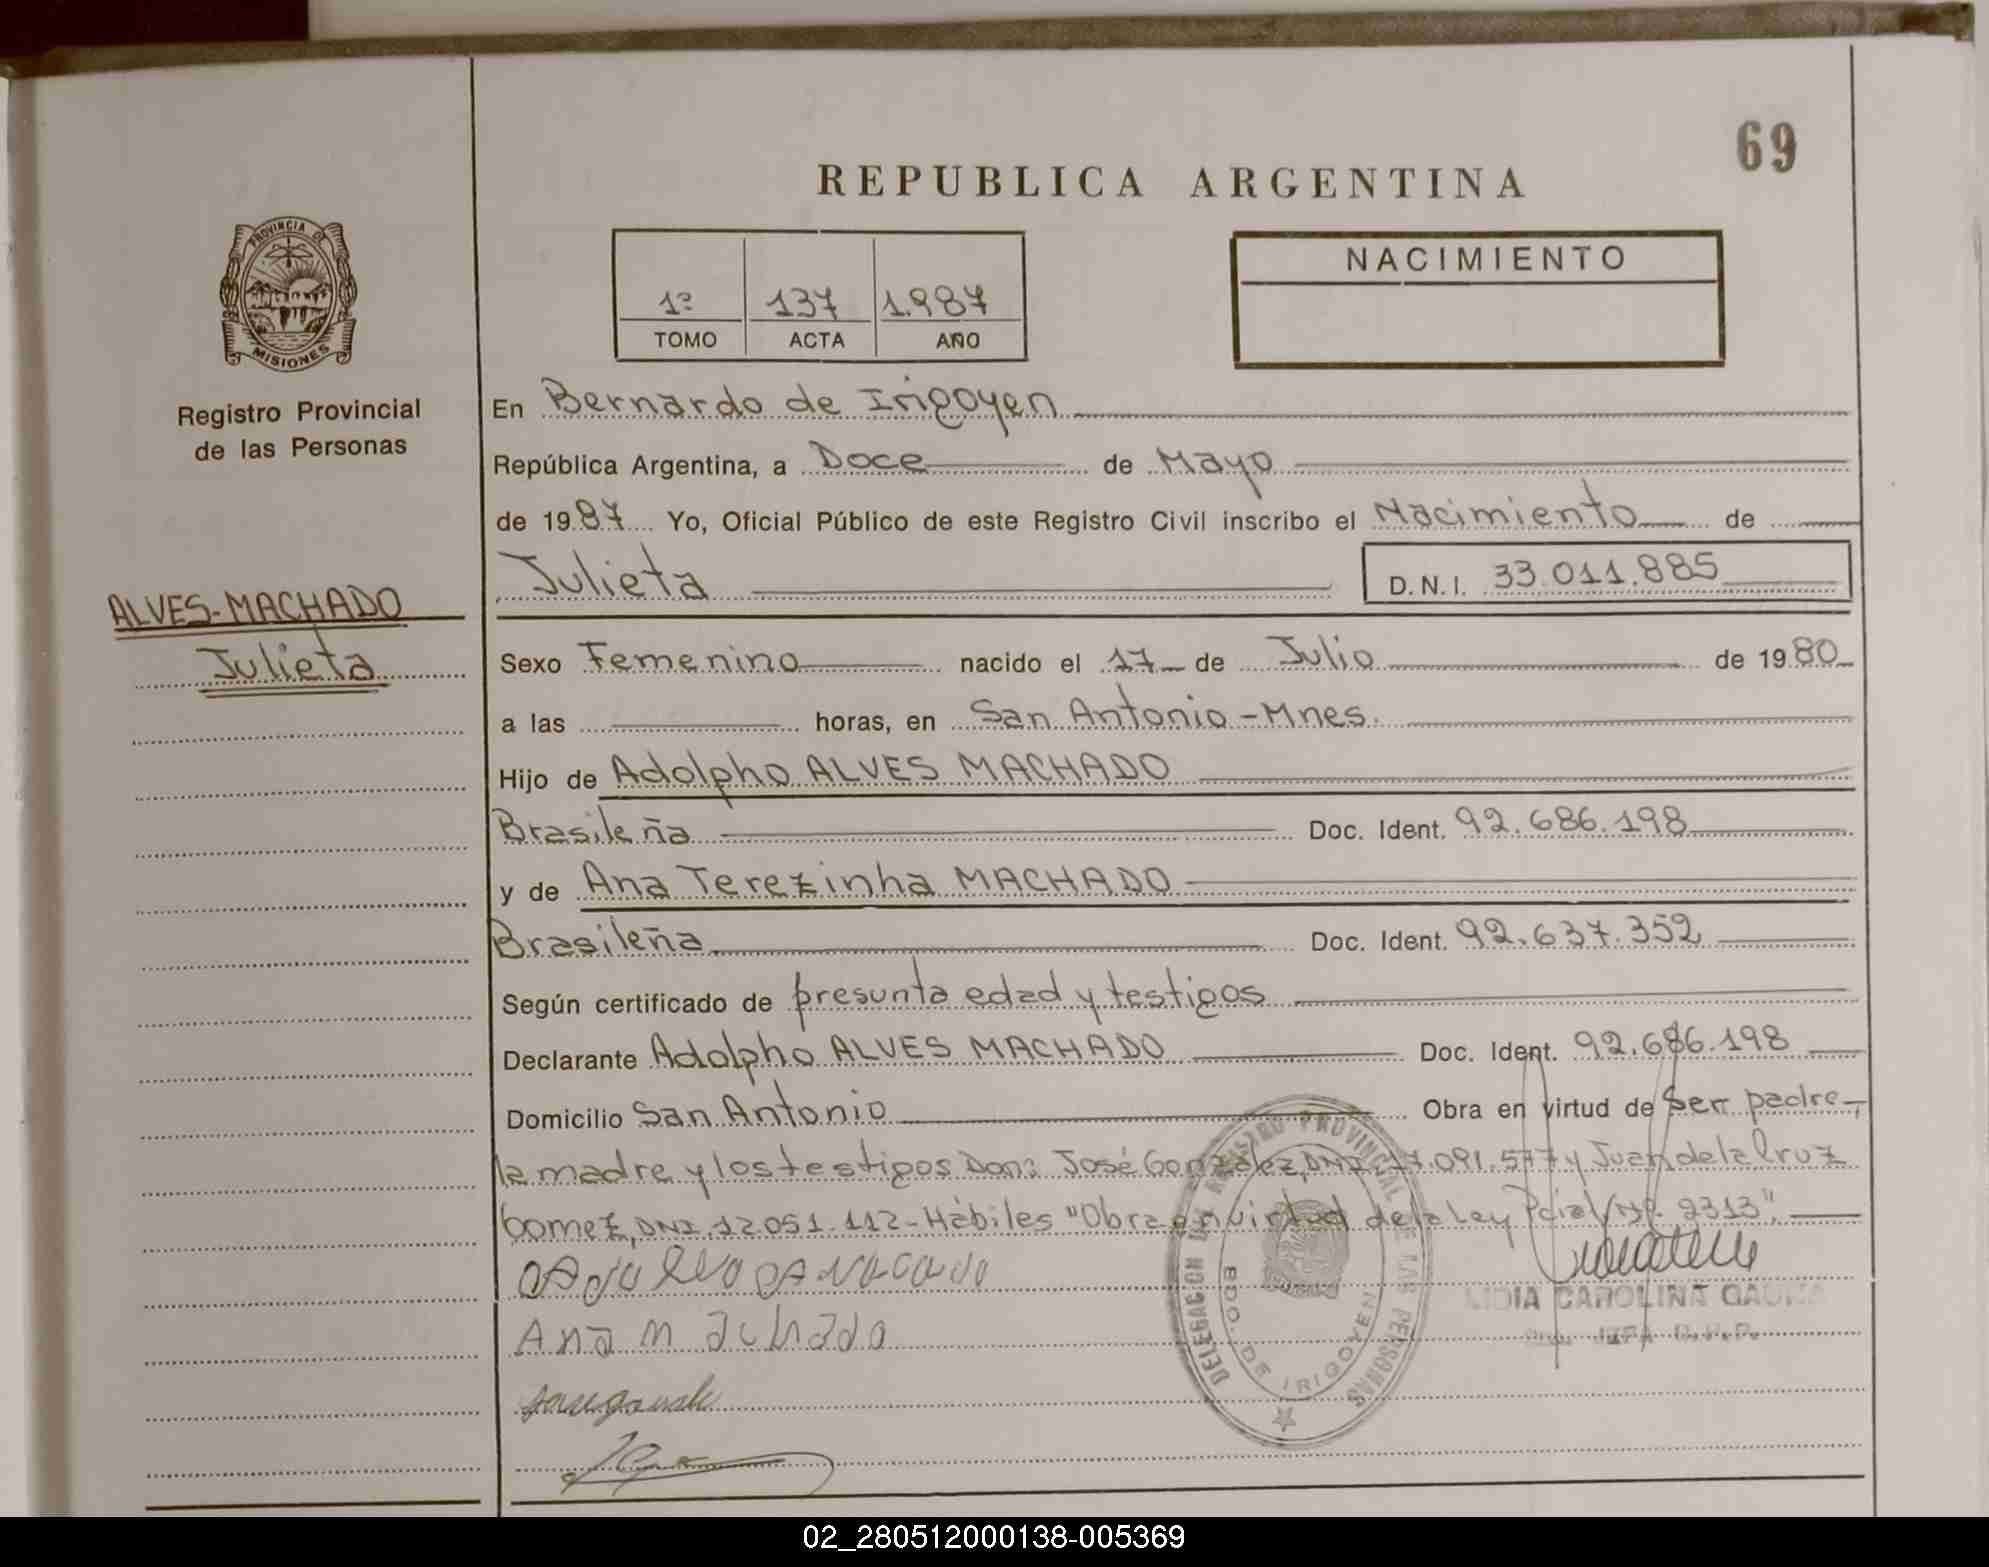 69
REPUBLICA ARGENTINA
PROVINCIA DE
MISIONES
Registro Provincial
de las Personas
1º 137 1.987
TOMO ACTA AÑO
NACIMIENTO
En Bernardo de Irigoyen
República Argentina, a Doce de Mayo
de 1987 Yo, Oficial Público de este Registro Civil inscribo el Nacimiento de
Julieta D.N.I. 33.011.885
ALVES-MACHADO
Julieta
Sexo Femenino nacido el 17 de Julio de 1980
a las horas, en San Antonio-Mnes.
Hijo de Adolpho ALVES MACHADO
Brasileña Doc. Ident. 92.686.198
y de Ana Terezinha MACHADO
Brasileña Doc. Ident. 92.637.352
Según certificado de presunta edad y testigos
Declarante Adolpho ALVES MACHADO Doc. Ident. 92.686.198
Domicilio San Antonio Obra en virtud de Ser padre,
la madre y los testigos Don: José Gonzalez, DNI. 17.091.577 y Juan de la Cruz
Gomez, DNI. 12.051.112-Hábiles "Obra en virtud de la Ley Pcial Nº. 2313".
Ana Machado
DELEGACION DEL REGISTRO PROVINCIAL DE LAS PERSONAS
BDO. DE IRIGOYEN
LIDIA CAROLINA
JEFA R.P.P.
02_280512000138-005369